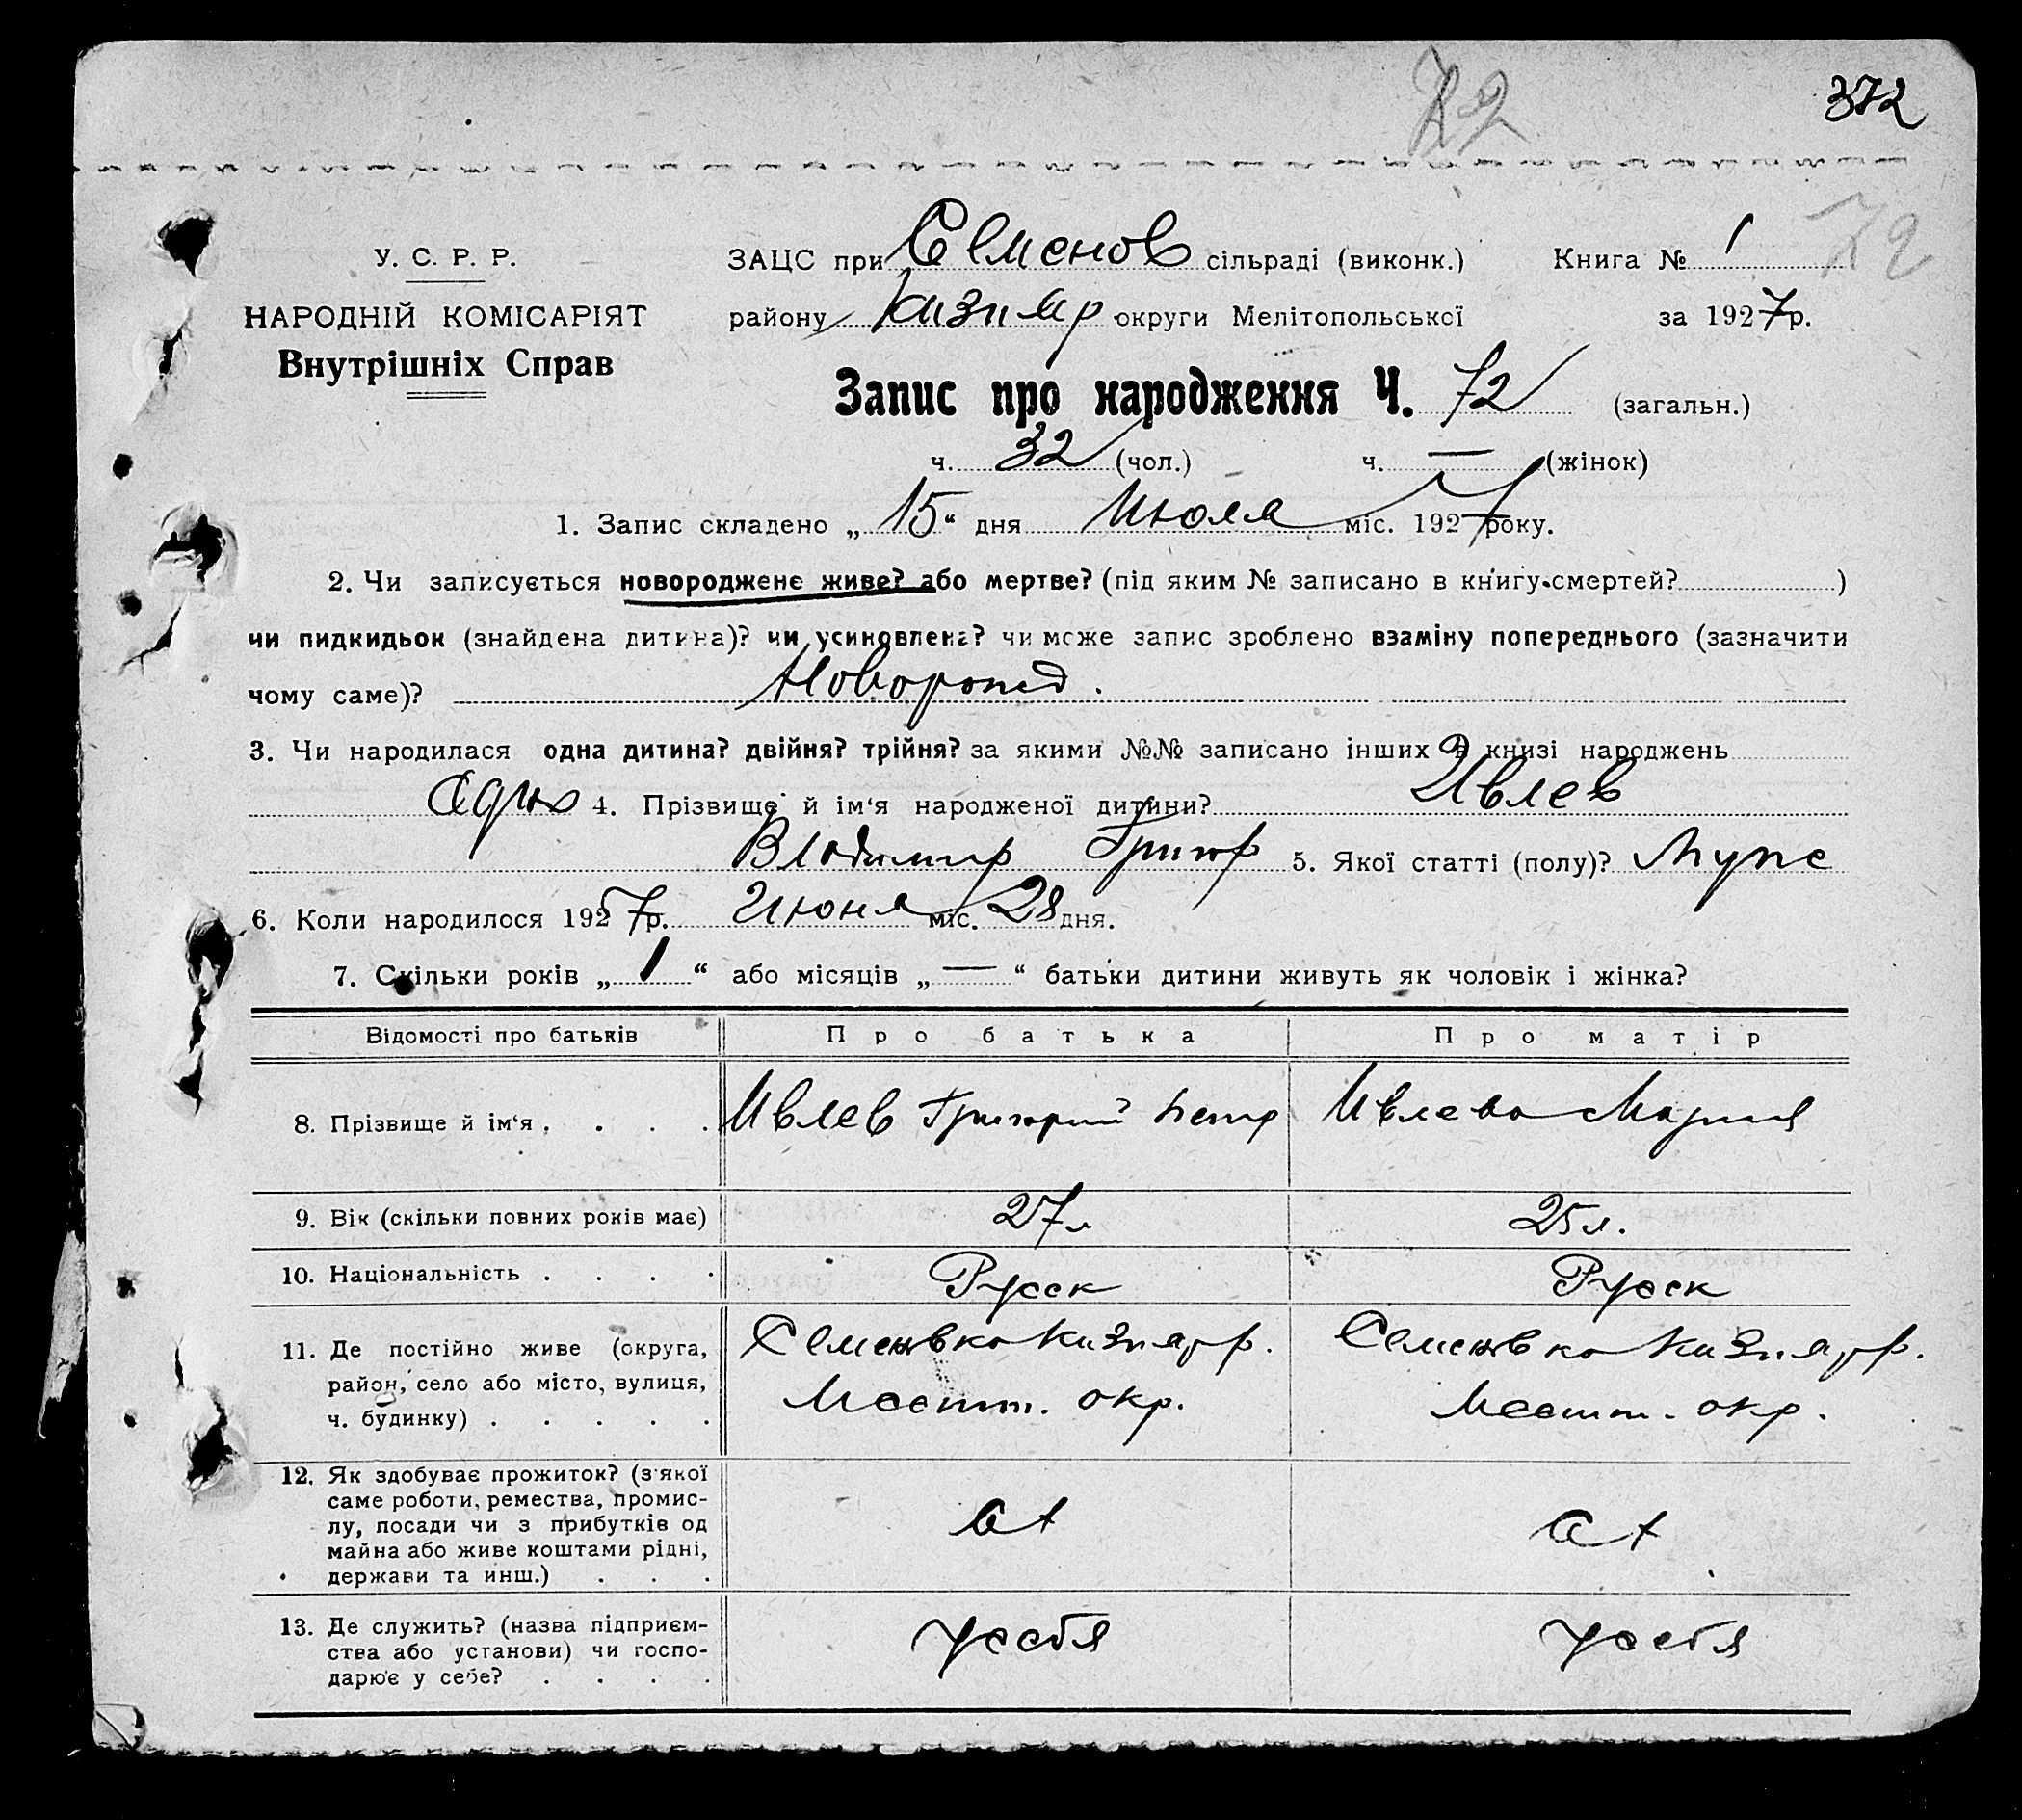 72
372
72
У. С. Р. Р.
НАРОДНІЙ КОМІСАРІЯТ
Внутрішніх Справ
ЗАЦС при Семенов сільраді (виконк.) Книга № 1
району Кизияр округи Мелітопольської за 1927 р.
Запис про народження Ч. 72 (загальн.)
ч. 32 (чол.) ч. — (жінок)
1. Запис складено „ 15 “ дня Июля міс. 1927 року.
2. Чи записується новороджене живе? або мертве? (під яким № записано в книгу смертей? )
чи пидкидьок (знайдена дитина)? чи усиновлена? чи може запис зроблено взаміну попереднього (зазначити
чому саме)? Поворожд.
3. Чи народилася одна дитина? двійня? трійня? за якими №№ записано інших в книзі народжень
Один 4. Прізвище й ім‘я народженої дитини? Ивлев
Владимир Григор 5. Якої статті (полу)? Муже
6. Коли народилося 1927 р. Июня міс. 28 дня.
7. Скільки років „ 1 “ або місяців „ — “ батьки дитини живуть як чоловік і жінка?
Відомості про батьків Про батька Про матір
8. Прізвище й ім‘я . . . . Ивлев Григорий Петр Ивлева Мария
9. Вік (скільки повних років має) 27 л 25 л.
10. Національність . . . . Русск Русск
11. Де постійно живе (округа,
район, село або місто, вулиця,
ч. будинку) . . . . .
Семеновка Кизиярр.
окр.
Семеновка Кизиярр.
окр.
12. Як здобуває прожиток? (з якої
саме роботи, ремества, промис-
лу, посади чи з прибутків од
майна або живе коштами рідні,
держави та инш.) . . .
сх
сх
13. Де служить? (назва підприєм-
ства або установи) чи госпо-
дарює у себе? . . . .
у себя
у себя